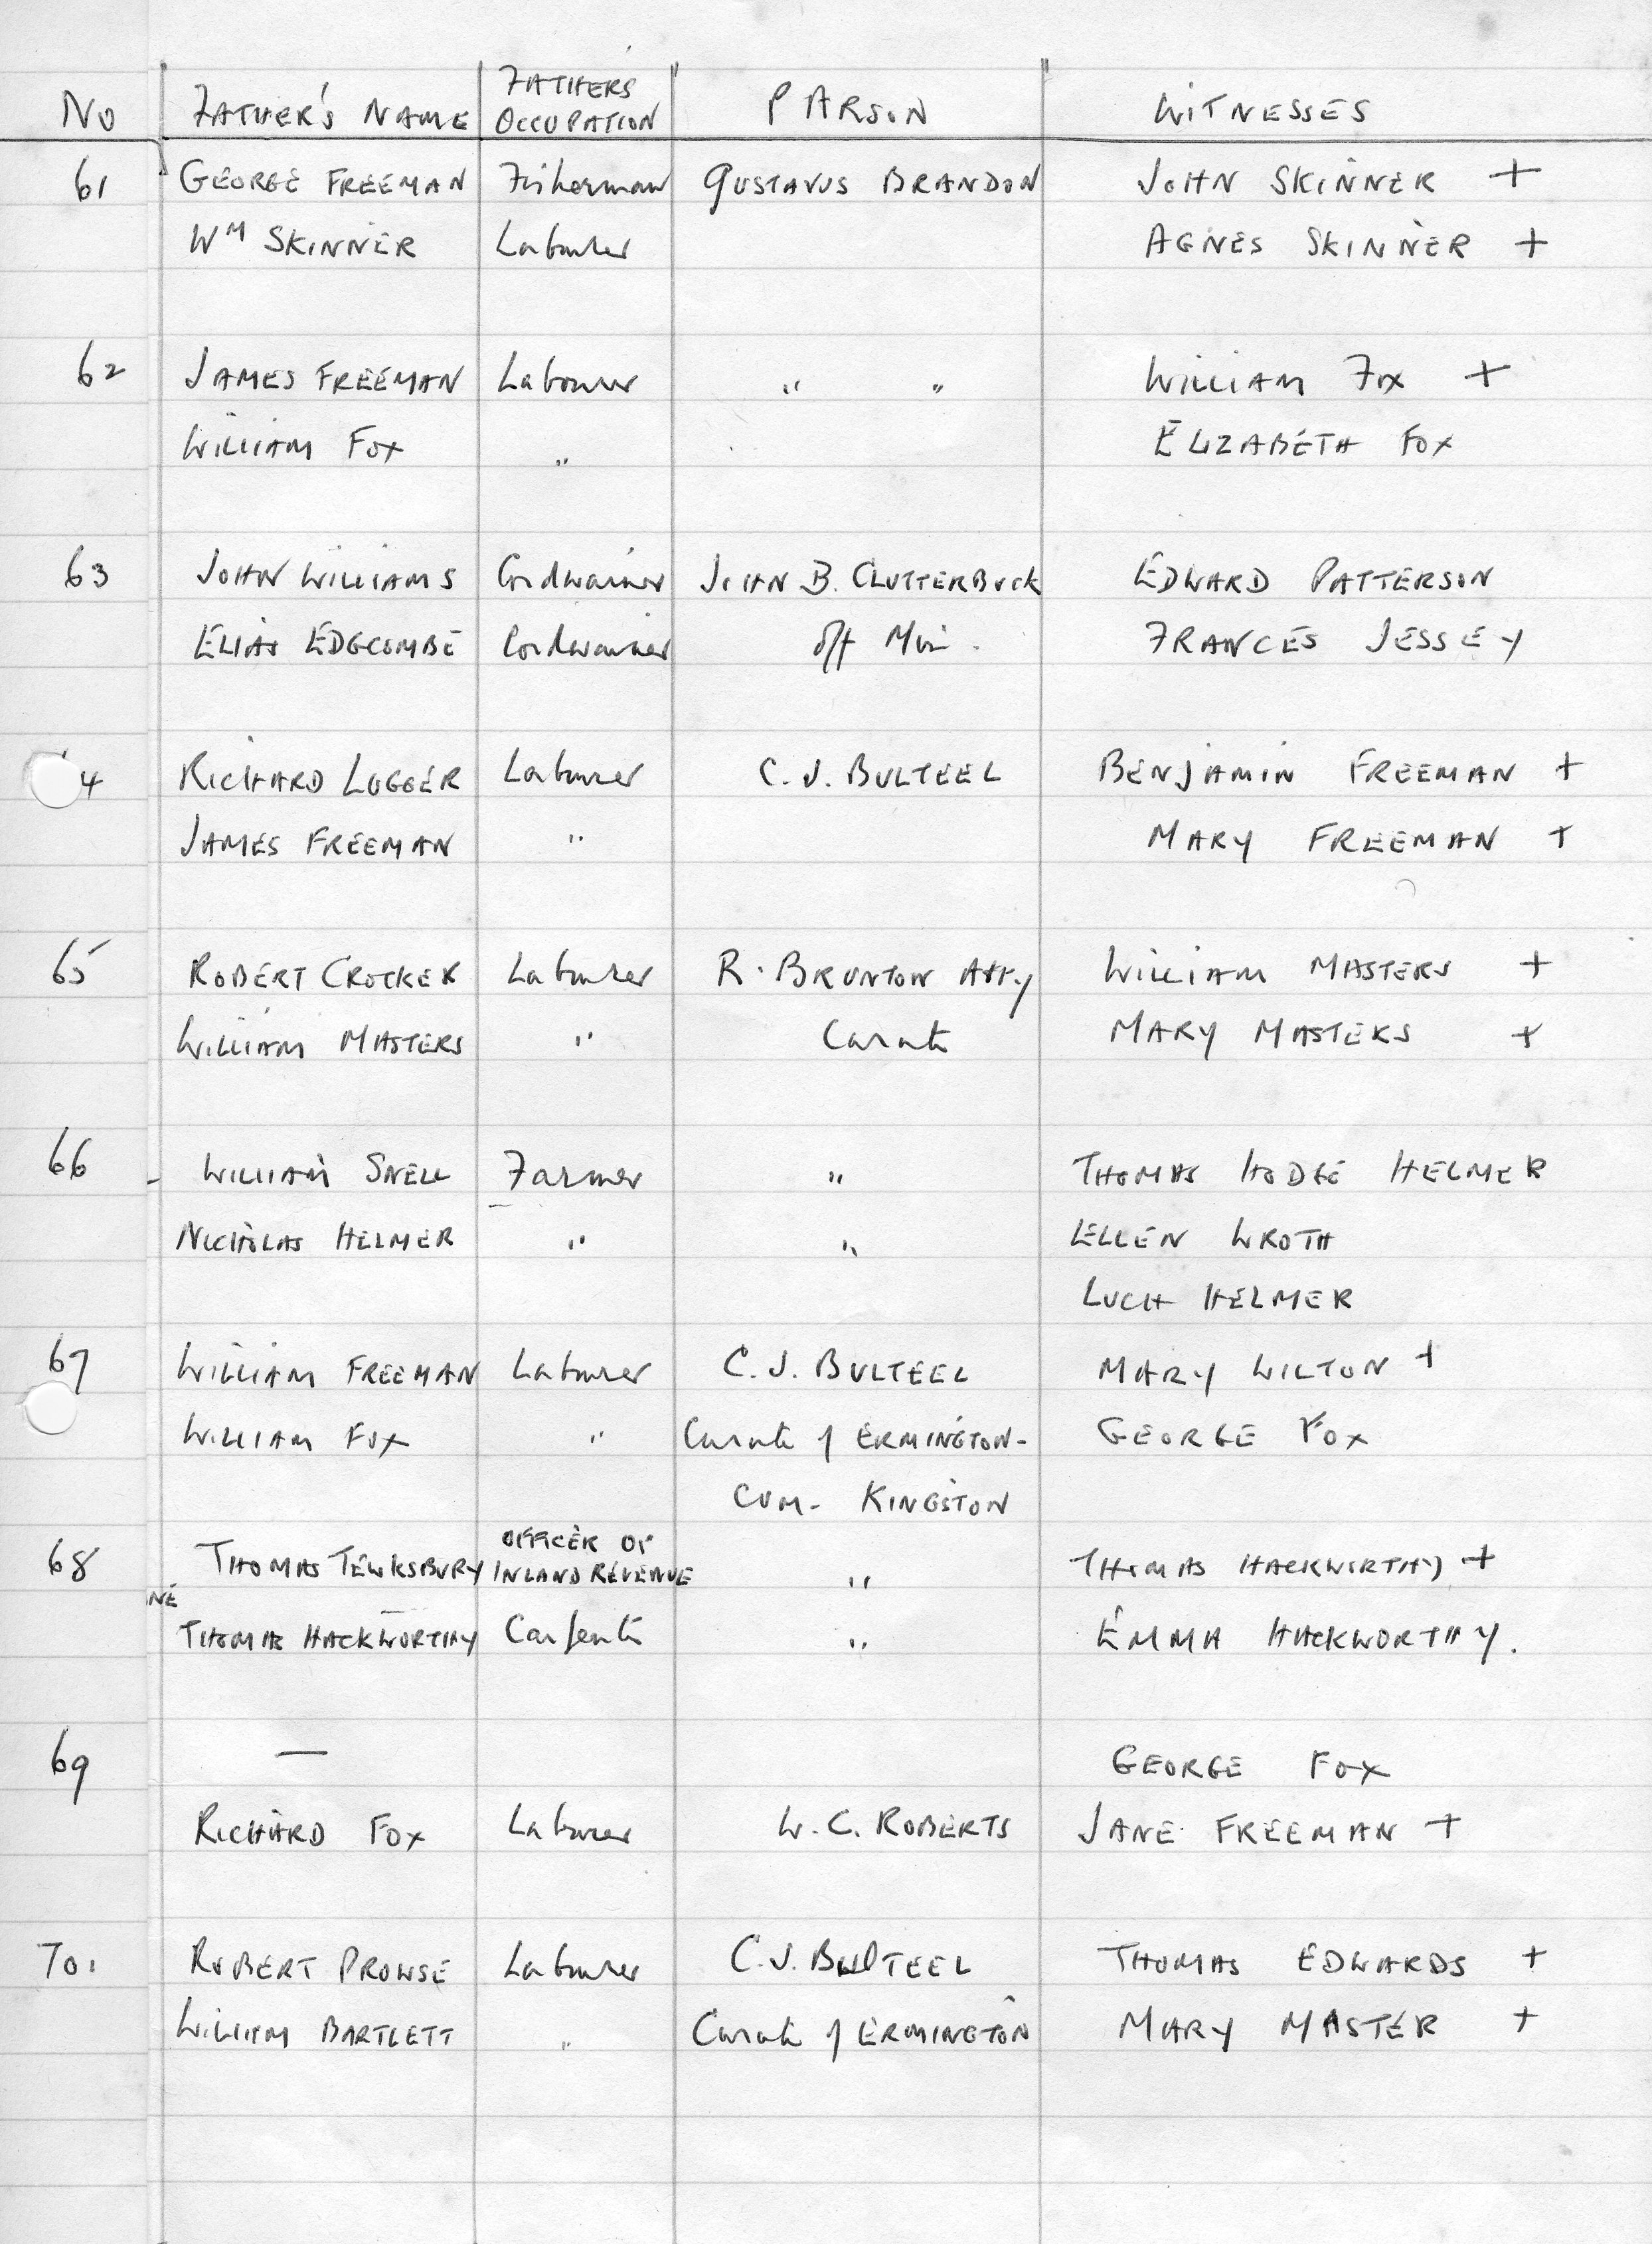 No FATHER'S NAME FATHERS OCCUPATION PARSON WITNESSES
61 GEORGE FREEMAN Fisherman GUSTAVUS BRANDON JOHN SKINNER +
Wᴹ SKINNER Labourer AGNES SKINNER +
62 JAMES FREEMAN Labourer " " WILLIAM FOX +
WILLIAM FOX " ELIZABETH FOX
63 JOHN WILLIAMS Cordwainer JOHN B. CLUTTERBUCK EDWARD PATTERSON
ELIAS EDGCOMBE Cordwainer Off Min. FRANCES JESSEY
4 RICHARD LUGGER Labourer C. J. BULTEEL BENJAMIN FREEMAN +
JAMES FREEMAN " MARY FREEMAN +
65 ROBERT CROCKER Labourer R. BRUNTON WILLIAM MASTERS +
WILLIAM MASTERS " Curate MARY MASTERS +
66 WILLIAM SNELL Farmer " THOMAS HODGE HELMER
NICHOLAS HELMER " " ELLEN WROTH
LUCH HELMER
67 WILLIAM FREEMAN Labourer C. J. BULTEEL MARY WILTON +
WILLIAM FOX " Curate of ERMINGTON- GEORGE FOX
CUM- KINGSTON
68 THOMAS TEWKSBURY OFFICER OF INLAND REVENUE " THOMAS HACKWORTHY +
NE
THOMAS HACKWORTHY Carpenter " EMMA HACKWORTHY.
69 — GEORGE FOX
RICHARD FOX Labourer W. C. ROBERTS JANE FREEMAN +
70. ROBERT PROWSE Labourer C. J. BULTEEL THOMAS EDWARDS +
WILLIAM BARTLETT " Curate of ERMINGTON MARY MASTER +